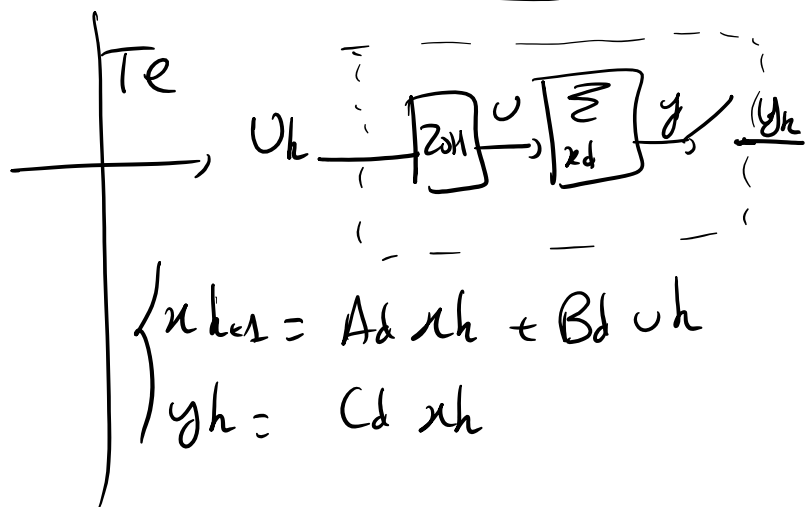 Te
Uk ZOH U Σ xd y yk
xk+1 = Ad xk + Bd uk
yk = Cd xk